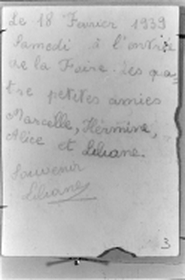 Le 18 Février 1939
Samedi à l'entrée
de la Foire. Les qua-
tre petites amies
Marcelle, Hermine,
Alice et Liliane.
Souvenir
Liliane
3